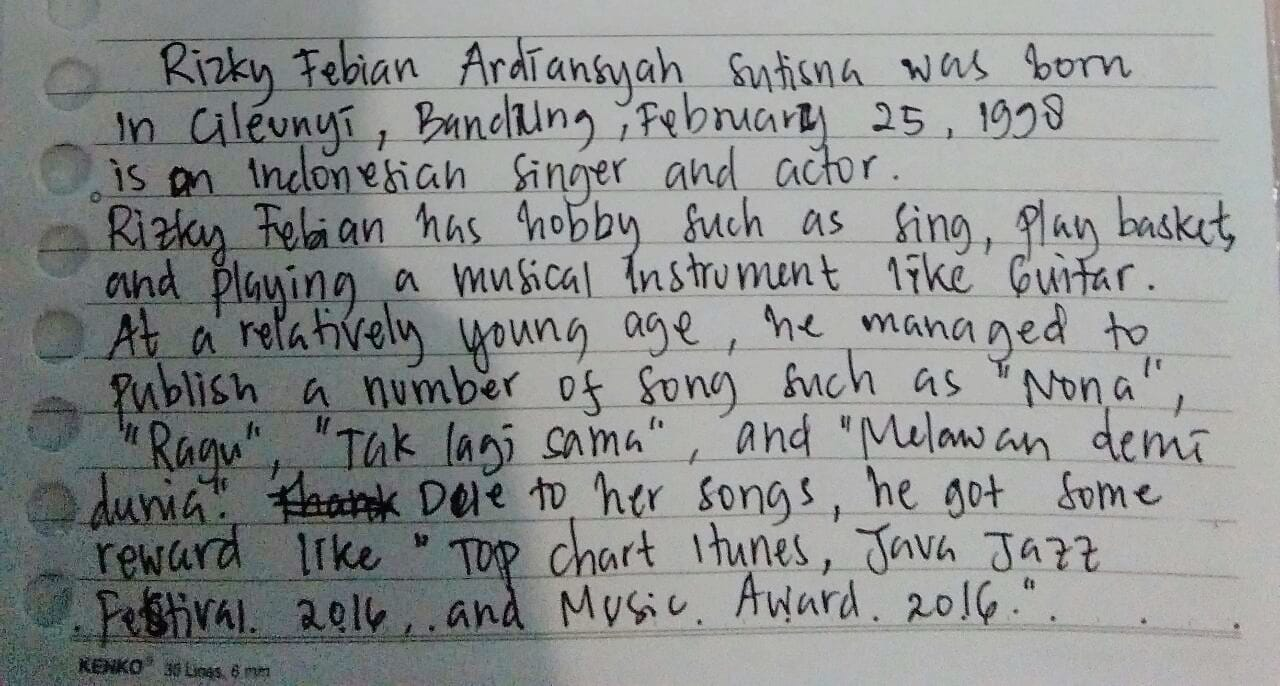 Rizky Febian Ardiansyah Sutisna was born
in Cileunyi, Bandung, February 25, 1998
is an Indonesian singer and actor.
Rizky Febian has hobby such as sing, play basket,
and playing a musical instrument like Guitar.
At a relatively young age, he managed to
publish a number of song such as "Nona",
"Ragu", "Tak lagi sama", and "Melawan demi
dunia". Thank Dule to her songs, he got some
reward like "Top chart itunes, Java Jazz
Festival. 2016, and Music. Award. 2016.".
KENKO® 36 Lines, 6 mm